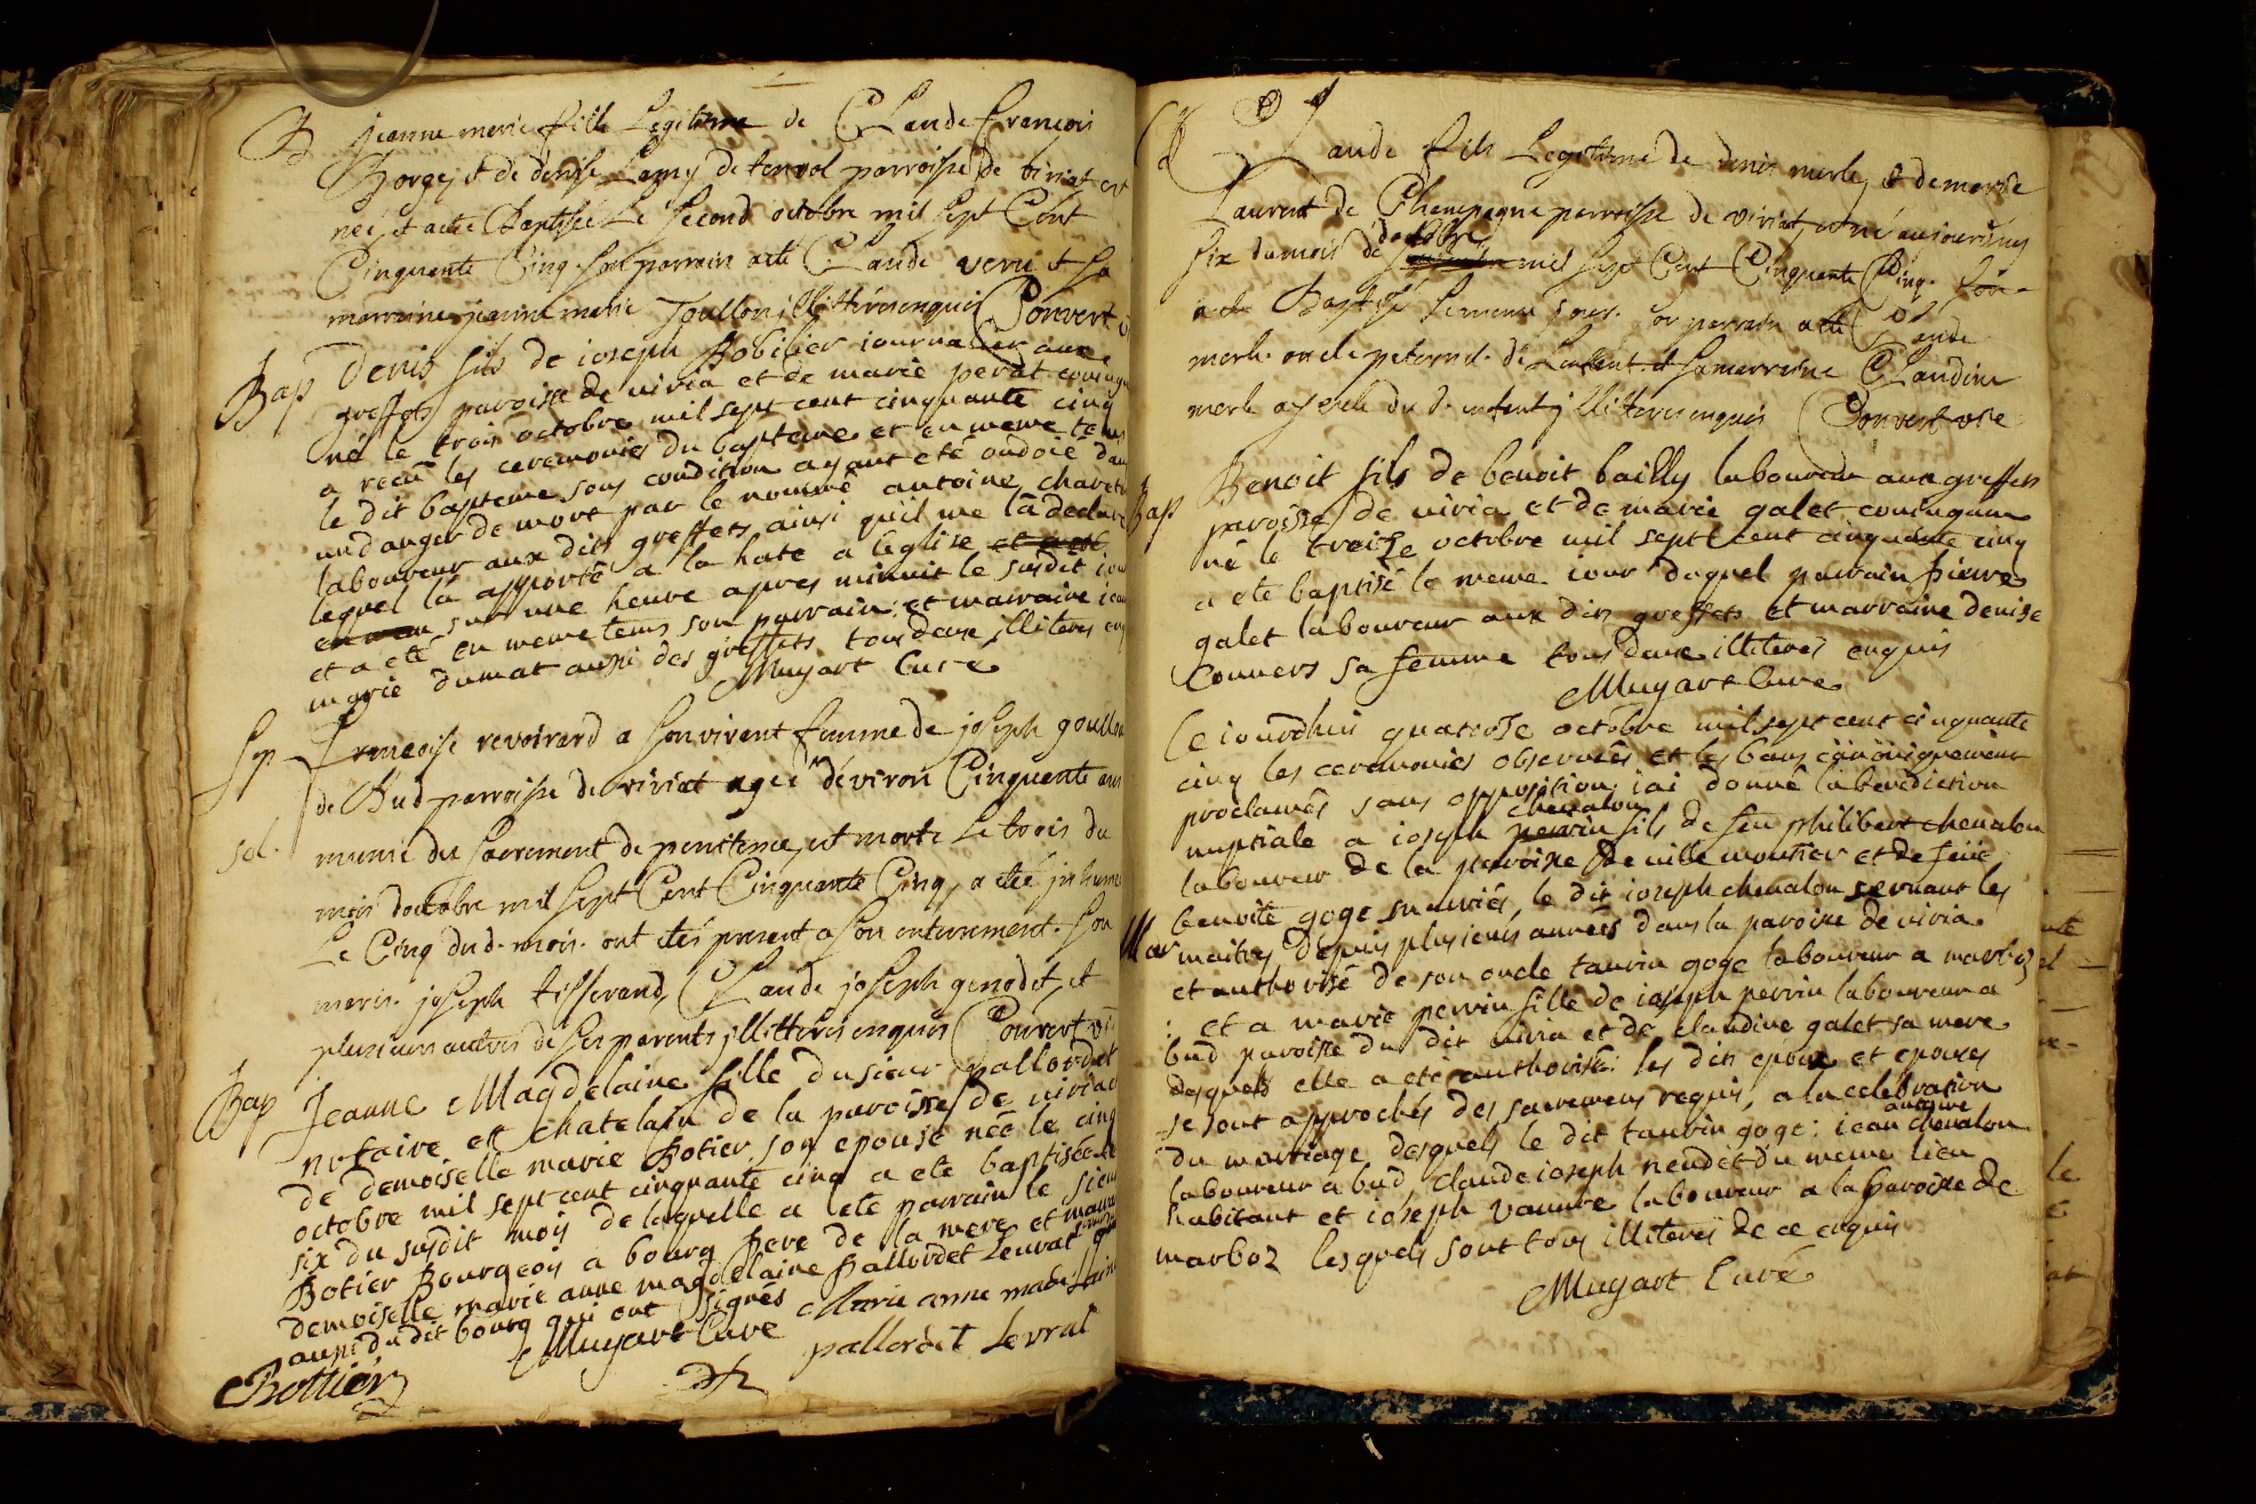 B Jeanne marie fille Legitime de Claude francois
Borget et de denise Lamy de tonvol parroisse de viriat est
neé, et a eté Baptisée Le second octobre mil sept Cent
Cinquante Cinq. son parrain a eté Claude veru et sa
marraine jeanne marie Toullon illitterés enquis Convert v
Bap Denis fils de ioseph Bobilier iournalier aux
greffets paroisse de viria et de marie perat coniugu
né le trois octobre mil sept cent cinquante cinq
a recû les ceremonies du bapteme et en meme tems
le dit bapteme sous condition ayant eté ondoié dans
un danger de mort par le nommé antoine chavet
laboureur aux dits greffets ainsi quil me la declaré
lequel la apporté a la hate a leglise et a eté
en mem sur une heure apres minuit le susdit iour
et a eté en meme tems son parrain, et marraine iean
marie dumat aussi des greffets tous deux illiteres enq
Muyart Curé
Sep francoise revoirard a son vivant femme de joseph goullon
de Bud parroisse de viriat agée d'éviron Cinquante ans
sol. munie du sacrement de penitence, est morte Le trois du
mois doctobre mil sept Cent Cinquante Cinq, a eté jnhumé
Le Cinq dud. mois. ont etés present a son enterrement. son
maris. joseph tisserand, Claude joseph genodet, et
plusieurs autres de ses parents jllitterés enquis Convert vi
Bap Jeanne Magdelaine fille du sieur pallordet
notaire et chatelain de la paroisse de viriat
de demoiselle marie Botier son epouse née le cinq
octobre mil sept cent cinquante cinq a eté baptisée le
six du susdit mois de laquelle a eté parrain le sieur
Botier Bourgeois a bourg pere de la mere et marrai
demoiselle marie anne magdelaine pallordet Levrat
aussi du dit bourg qui ont signés
Muyart Curé Marie anne madelaine
Bottier pallordet Levrat
B Claude fils Legitime de denis merle, et de marie
Laurent de Champagne parroisse de viriat, est né aujourd'huy
six du mois de doctobre mil sept Cent Cinquante Cinq.
a eté Baptisé le meme jour. son parrain a eté Claude
merle. oncle paternel. de Lenfent et sa marraine Claudine
merle ayeule du d. enfent jllitterés enquis Convert vire
Bap Benoit fils de benoit bailly laboureur aux greffets
paroisse de viria et de marie galet coniugum
né le treize octobre mil sept cent cinquante cinq
a eté baptisé le meme iour duquel parrain pierre
galet laboureur aux dits greffets et marraine denise
Convers sa femme tous deux illiterés enquis
Muyart Curé
Ce iourdhui quatorze octobre mil sept cent cinquante
cinq les ceremonies observées et les bans canoniquement
proclamés sans opposition iai donné la benediction
nuptiale a ioseph perrin chevalon fils de feu philibert chevalon
laboureur de la paroisse de ville moutier et de feüe
benoite goge sa mariés, le dit ioseph chevalon servant les
Mar maitres depuis plusieurs années dans la paroisse de viria
et authorisé de son oncle taurin goge laboureur a marboz
et a marie perrin fille de ioseph perrin laboureur a
bud paroisse du dit viria et de claudine galet sa mere
desquels elle a eté authorisé: les dits epoux et epouses
se sont approchés des sacremens requis, a la celebration
du marriage desquels le dit taurin goge: iean antoine chevalon
laboureur a bud claude ioseph nendet du meme lieu
habitant et ioseph vannre laboureur a la paroisse de
marboz lesquels sont tous illiterés de ce enquis
Muyart Curé